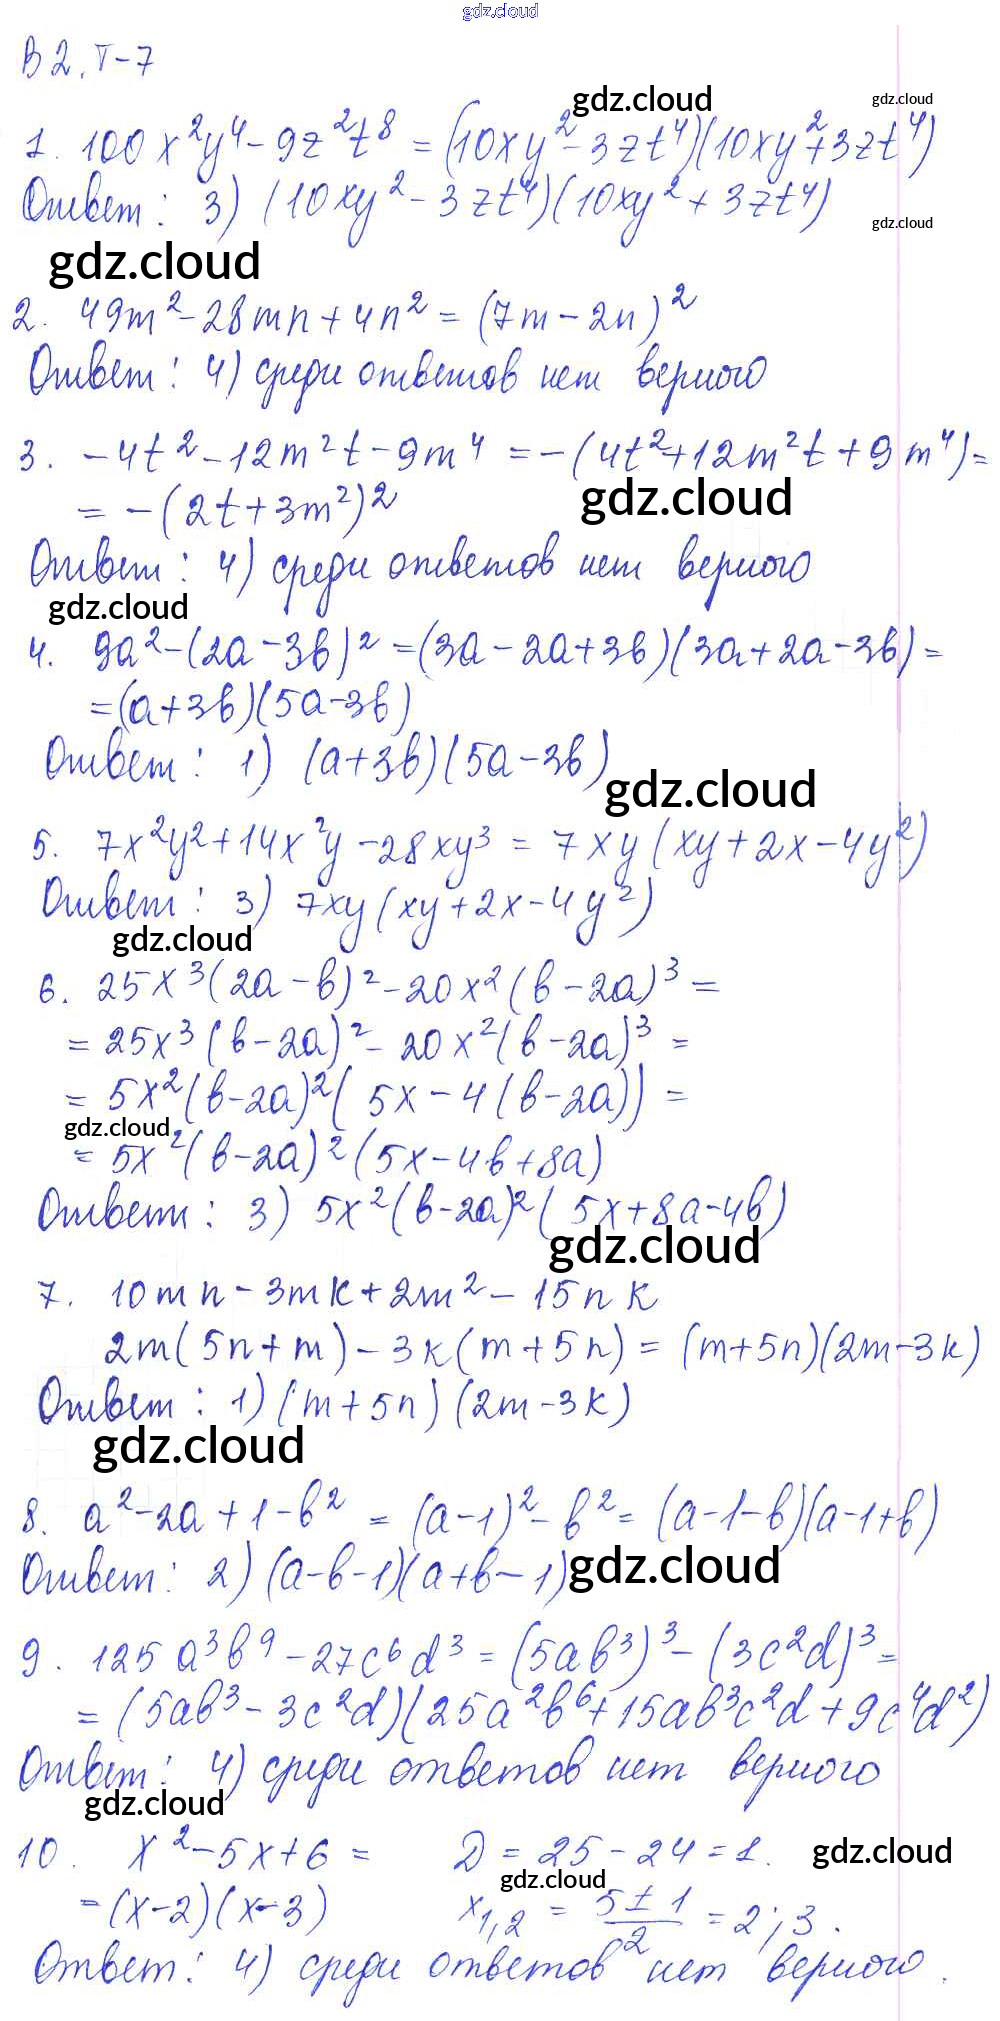 gdz.cloud
В2. Т-7
gdz.cloud gdz.cloud
1. 100x²y⁴ - 9z²t⁸ = (10xy² - 3zt⁴)(10xy² + 3zt⁴)
Ответ: 3) (10xy² - 3zt⁴)(10xy² + 3zt⁴)
gdz.cloud
gdz.cloud
2. 49m² - 28mn + 4n² = (7m - 2n)²
Ответ: 4) среди ответов нет верного
3. -4t² - 12m²t - 9m⁴ = -(4t² + 12m²t + 9m⁴) =
= -(2t + 3m²)²
gdz.cloud
Ответ: 4) среди ответов нет верного
gdz.cloud
4. 9a² - (2a - 3b)² = (3a - 2a + 3b)(3a + 2a - 3b) =
= (a + 3b)(5a - 3b)
Ответ: 1) (a + 3b)(5a - 3b)
gdz.cloud
5. 7x²y² + 14x²y - 28xy³ = 7xy(xy + 2x - 4y²)
Ответ: 3) 7xy(xy + 2x - 4y²)
gdz.cloud
6. 25x³(2a - b)² - 20x²(b - 2a)³ =
= 25x³(b - 2a)² - 20x²(b - 2a)³ =
= 5x²(b - 2a)²(5x - 4(b - 2a)) =
gdz.cloud
= 5x²(b - 2a)²(5x - 4b + 8a)
Ответ: 3) 5x²(b - 2a)²(5x + 8a - 4b)
gdz.cloud
7. 10mn - 3mk + 2m² - 15nk
2m(5n + m) - 3k(m + 5n) = (m + 5n)(2m - 3k)
Ответ: 1) (m + 5n)(2m - 3k)
gdz.cloud
8. a² - 2a + 1 - b² = (a - 1)² - b² = (a - 1 - b)(a - 1 + b)
Ответ: 2) (a - b - 1)(a + b - 1)
gdz.cloud
9. 125a³b⁹ - 27c⁶d³ = (5ab³)³ - (3c²d)³ =
= (5ab³ - 3c²d)(25a²b⁶ + 15ab³c²d + 9c⁴d²)
Ответ: 4) среди ответов нет верного
gdz.cloud
10. x² - 5x + 6 = D = 25 - 24 = 1.
gdz.cloud
gdz.cloud
= (x - 2)(x - 3) x₁,₂ = (5 ± 1)/2 = 2; 3.
Ответ: 4) среди ответов нет верного.
gdz.cloud